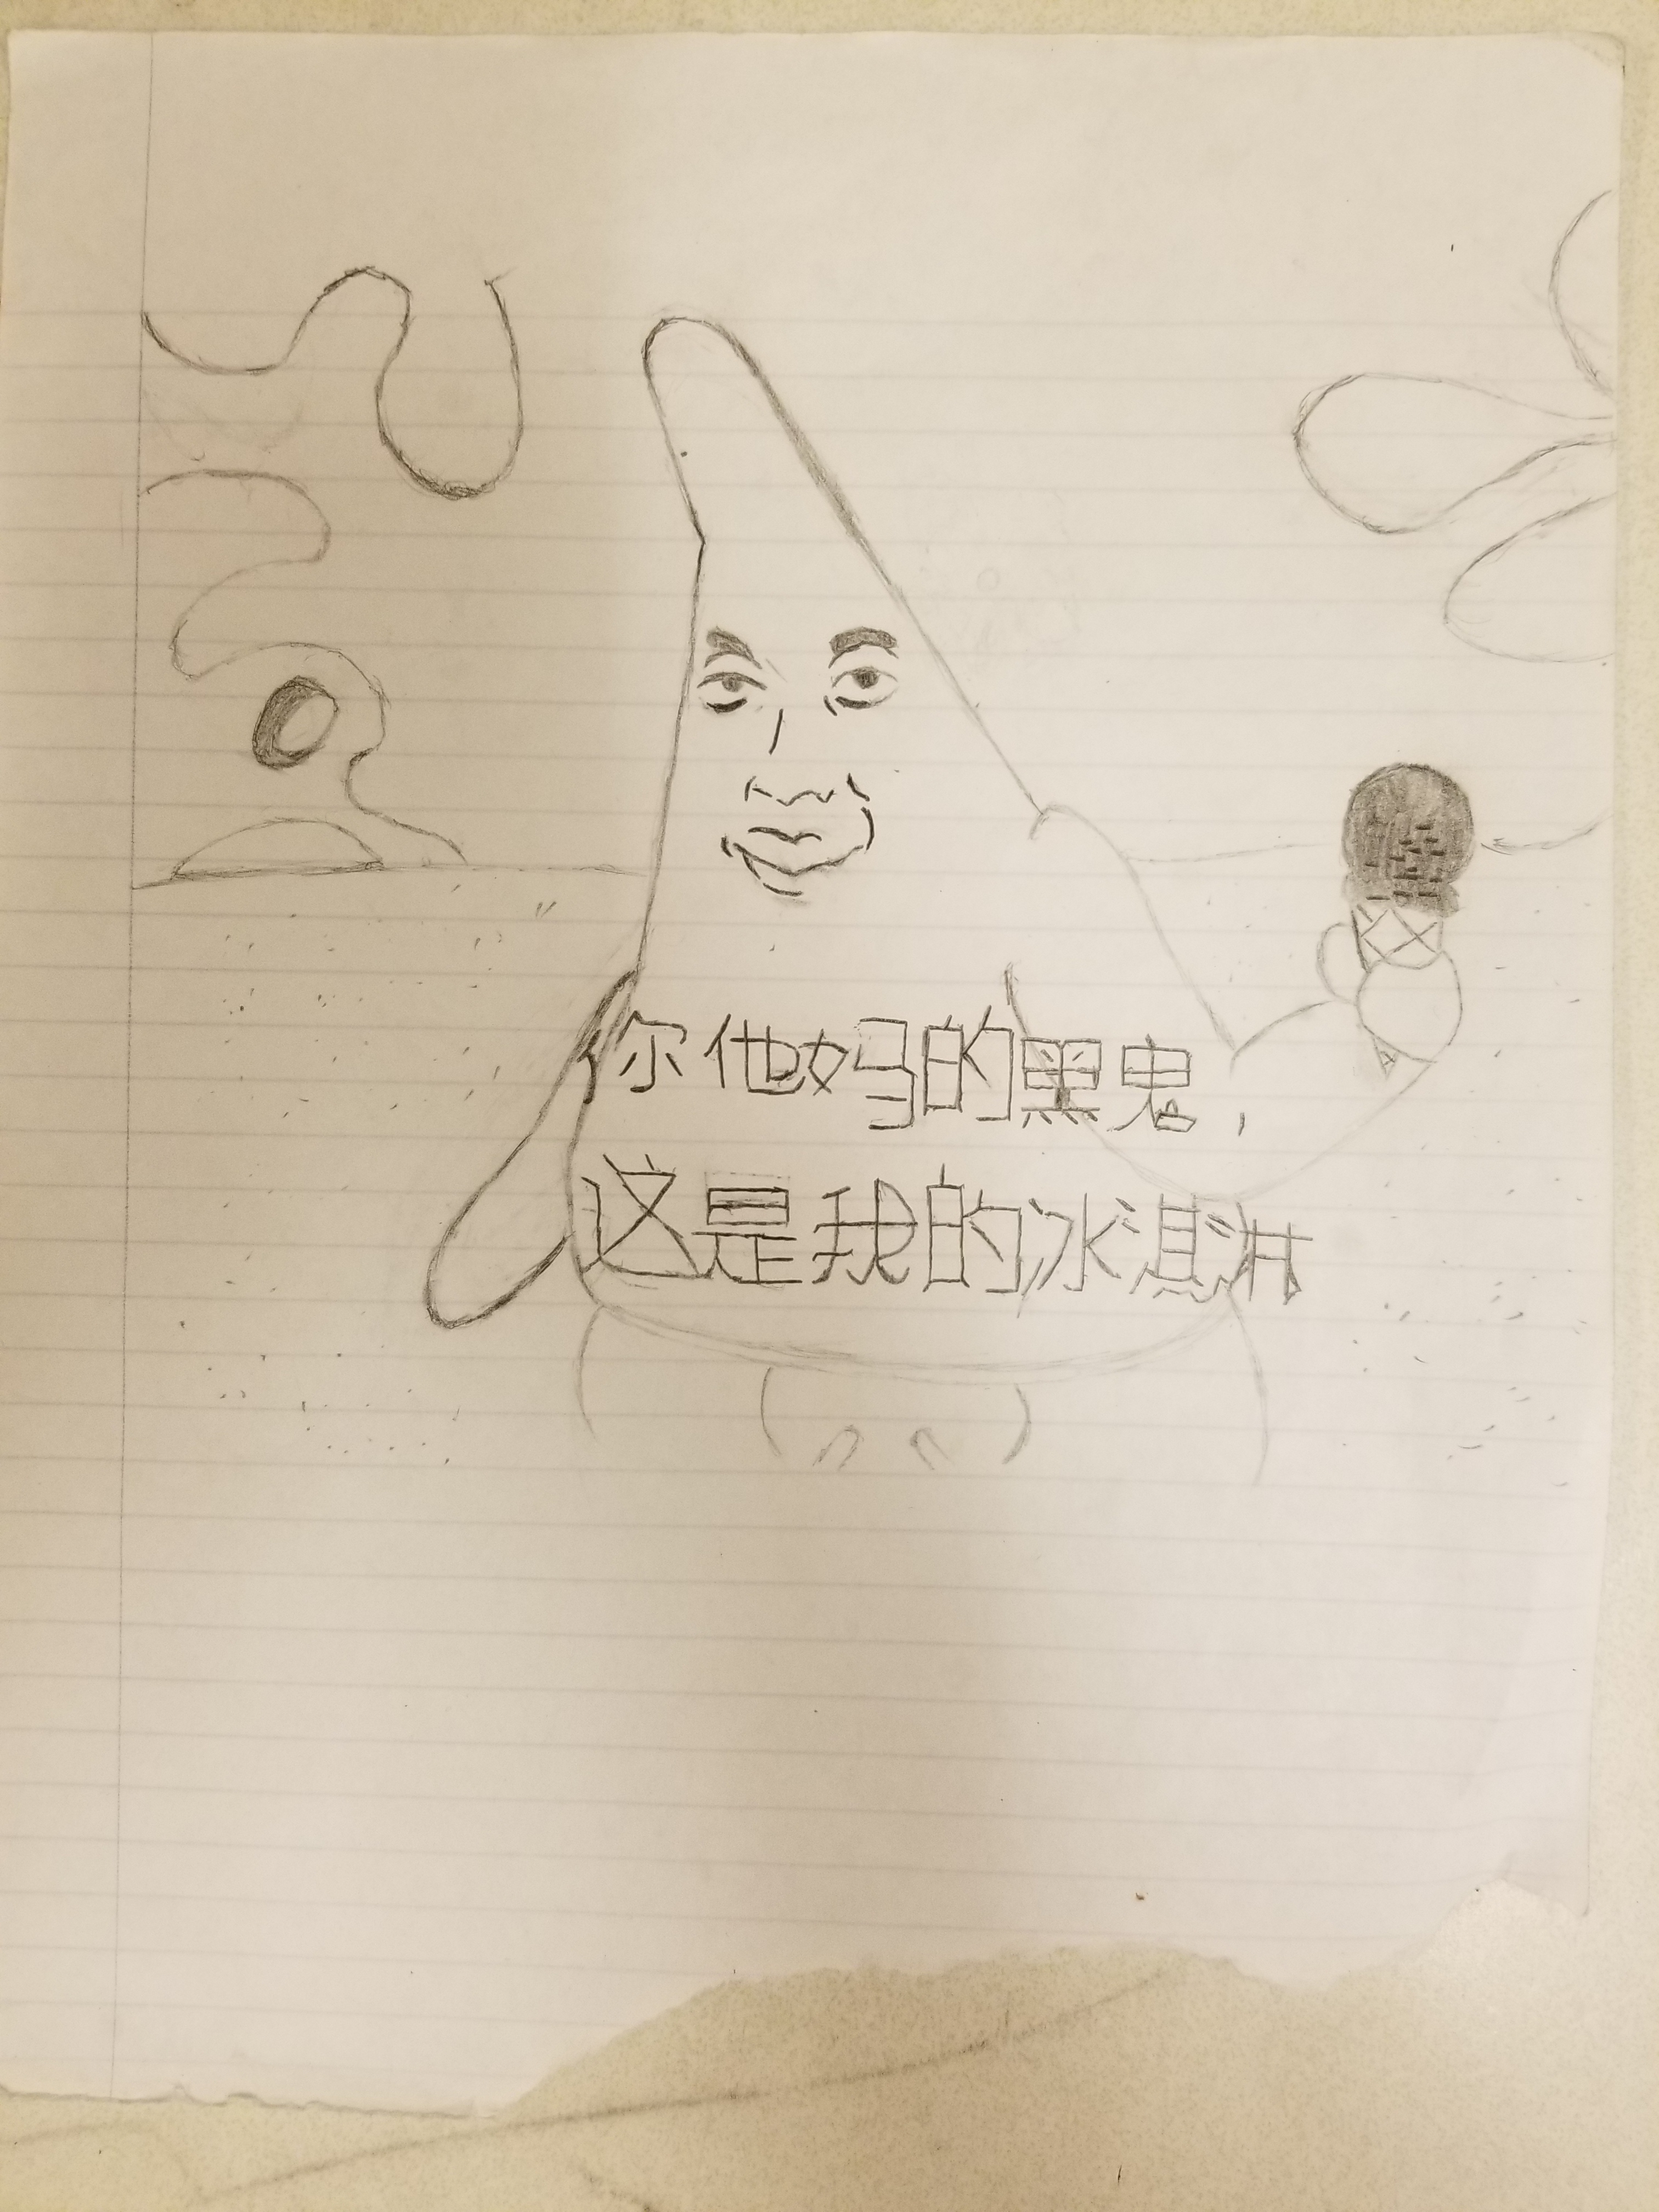 你他妈的黑鬼，
这是我的冰淇淋